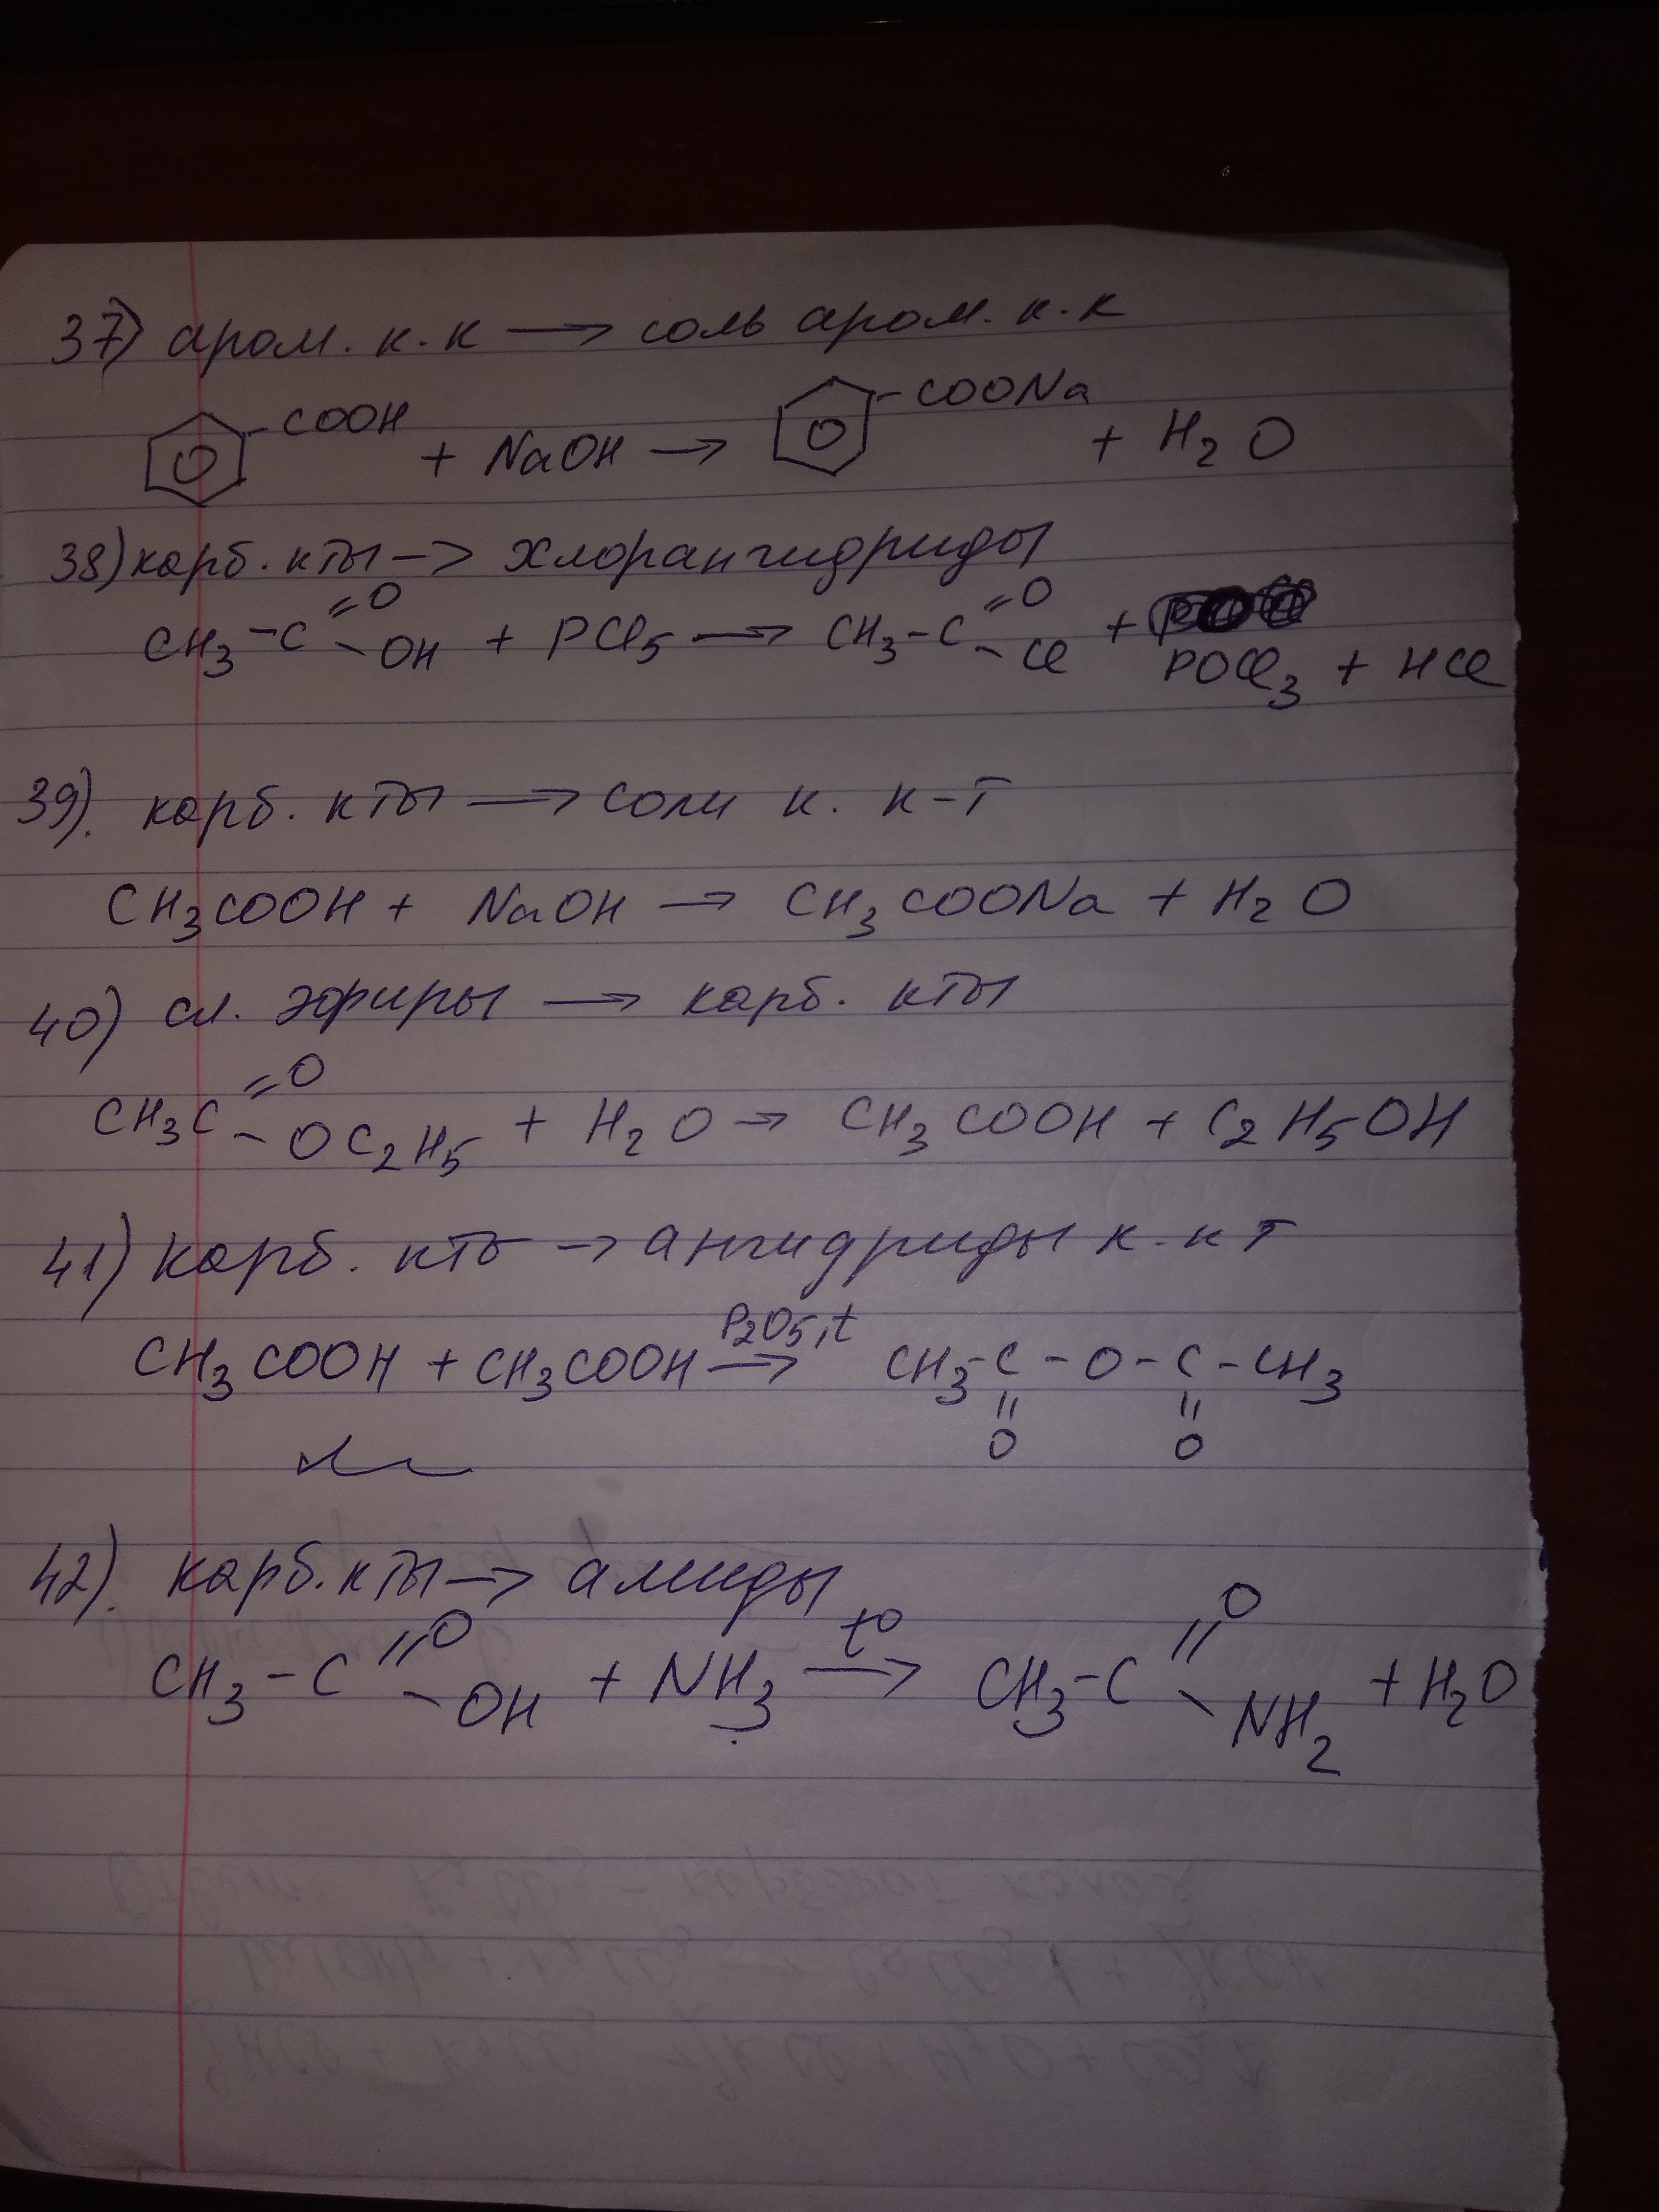 37) аром. к.к → соль аром. к.к
COOH + NaOH → COONa + H2O
38) карб. кты → хлорангидриды
CH3-C=O -OH + PCl5 → CH3-C=O -Cl + POCl3 + HCl
39). карб. кты → соли к. к-т
CH3COOH + NaOH → CH3COONa + H2O
40) сл. эфиры → карб. кты
CH3C=O -OC2H5 + H2O → CH3COOH + C2H5OH
41) карб. кты → ангидриды к. кт
CH3COOH + CH3COOH P2O5, t → CH3-C-O-C-CH3
=O =O
42). карб. кты → амиды
CH3-C=O -OH + NH3 t° → CH3-C=O -NH2 + H2O